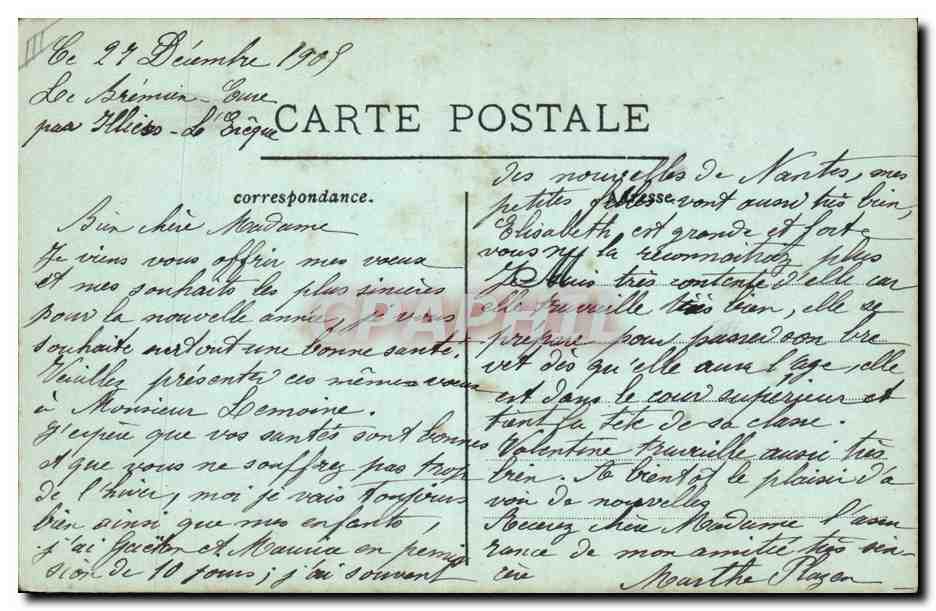 III
Ce 27 Décembre 1905
Le Brémien - Eure
par Illiers - L'Evêque
CARTE POSTALE
correspondance.
Adresse
Bien chère Madame
Je viens vous offrir mes vœux
et mes souhaits les plus sincères
pour la nouvelle année, je vous
souhaite surtout une bonne santé.
Veuillez présenter ces mêmes vœux
à Monsieur Lemoine.
J'espère que vos santés sont bonnes
et que vous ne souffrez pas trop
de l'hiver, moi je vais toujours
bien ainsi que mes enfants,
j'ai Gaëton et Maurice en permis
sion de 10 jours; j'ai souvent
des nouvelles de Nantes, mes
petites filles vont aussi très bien,
Elisabeth est grande et forte
vous ne la reconnaitrez plus
Je suis très contente d'elle car
elle travaille très bien, elle se
prépare pour passer son bre
vet dès qu'elle aura l'age, elle
est dans le cour supérieur et
tient la tête de sa classe.
Valentine travaille aussi très
bien. A bientôt le plaisir d'a
voir de nouvelles
Recevez chère Madame l'assu
rance de mon amitié très sin
cère
Marthe Plazen
CPAPHIL